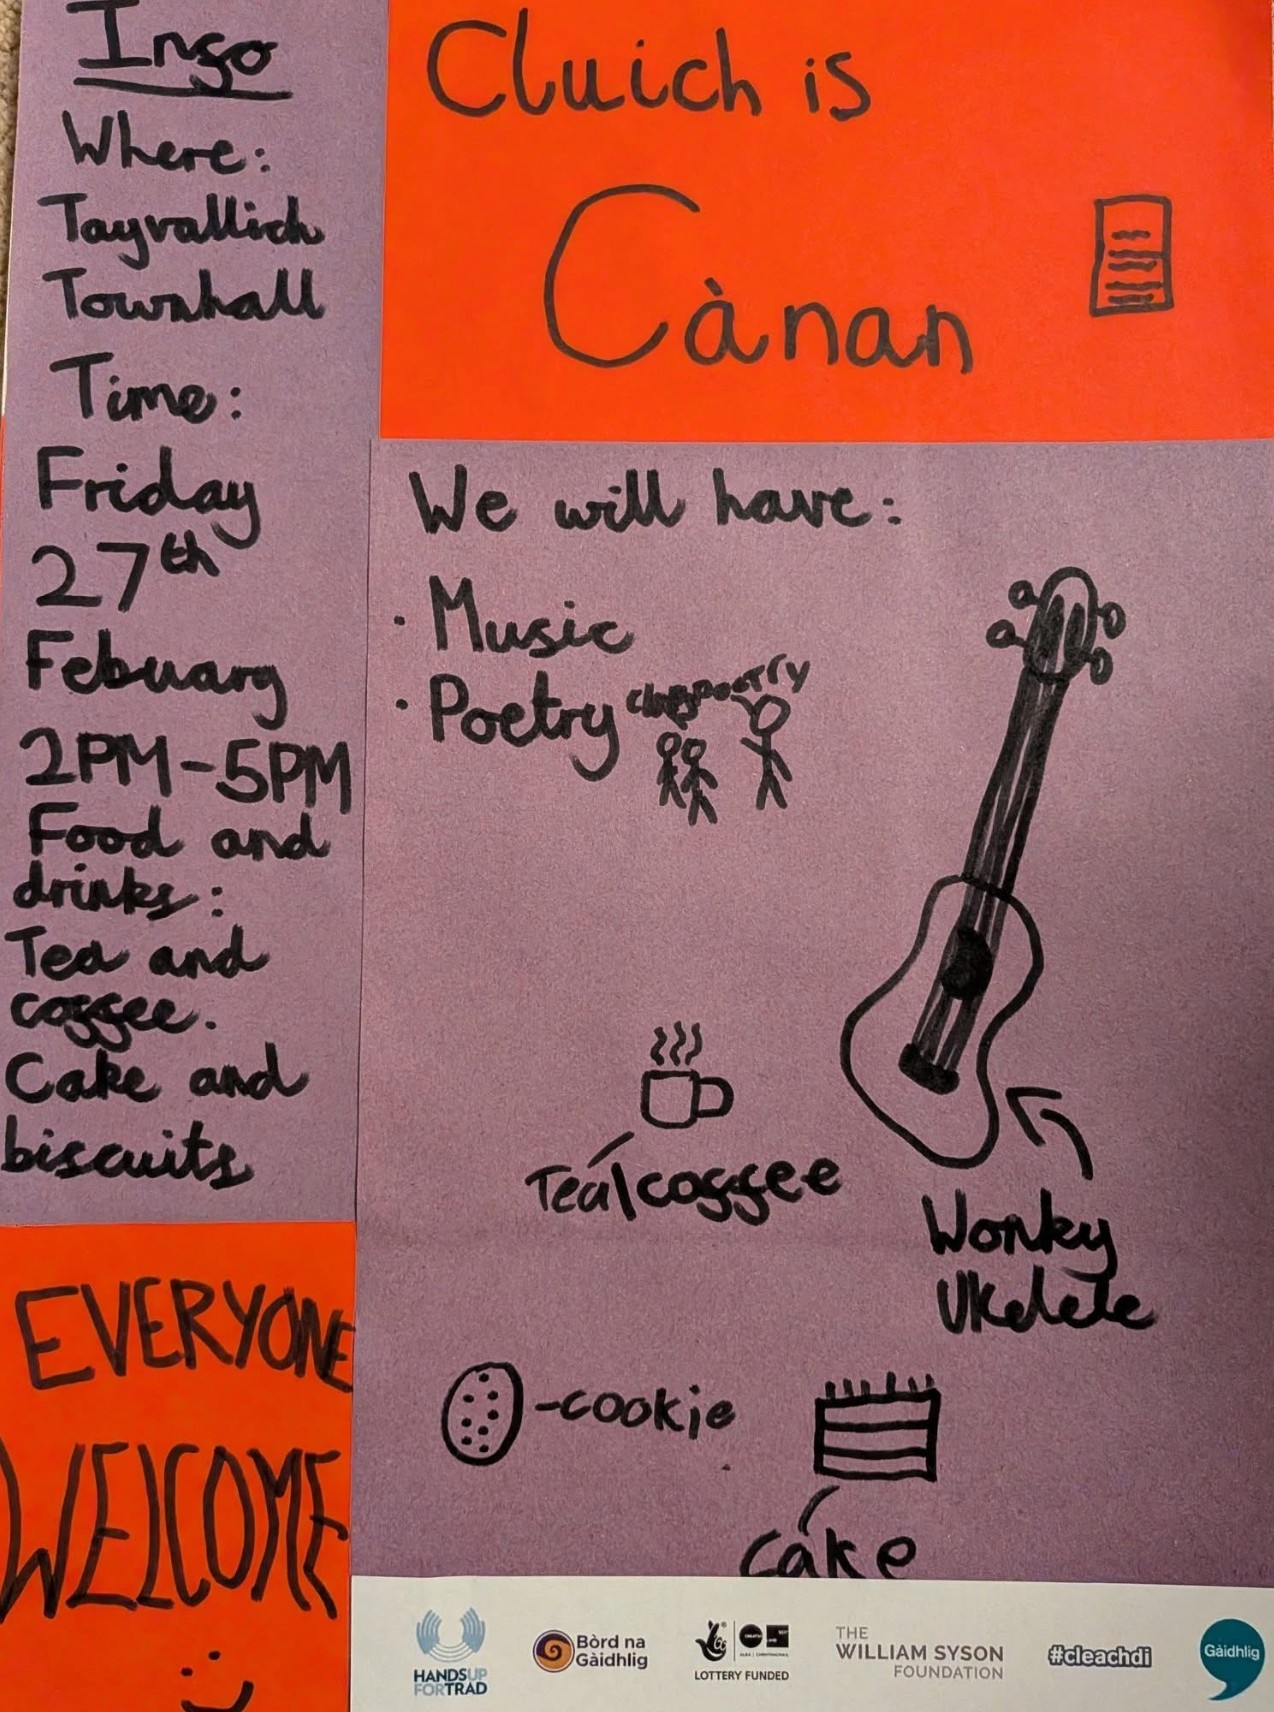 Info
Where:
Tayvallich
Townhall
Time:
Friday
27th
Febuary
2PM-5PM
Food and
drinks:
Tea and
coffee.
Cake and
biscuits
EVERYONE
WELCOME
Cluich is
Cànan
We will have:
· Music
· Poetry
poetry
Tea/coffee
Wonky
Ukelele
-cookie
cake
HANDS UP
FOR TRAD
Bòrd na
Gàidhlig
LOTTERY FUNDED
THE
WILLIAM SYSON
FOUNDATION
#cleachdi
Gàidhlig